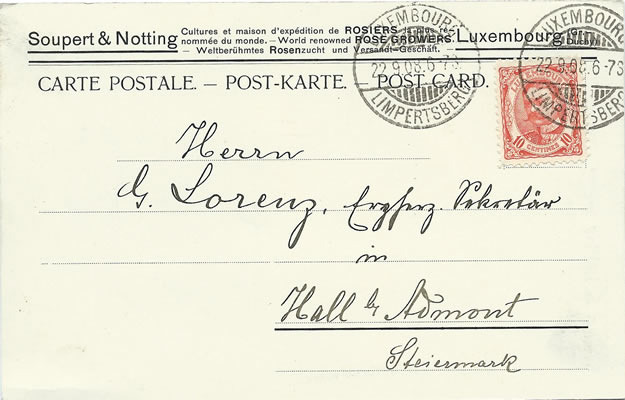 Soupert & Notting Cultures et maison d'expédition de ROSIERS la plus re- Luxembourg (Gr.
nommée du monde. — World renowned ROSE GROWERS. Duchy).
— Weltberühmtes Rosenzucht und Versandt-Geschäft.
CARTE POSTALE. — POST-KARTE. POST CARD.
LUXEMBOURG
22.9.08.6-7S
LIMPERTSBERG
LUXEMBOURG
22.9.08.6-7S
LIMPERTSBERG
10 CENTIMES 10
Herrn
G. Lorenz, Erzherz. Sekretär
in
Hall b/ Admont
Steiermark